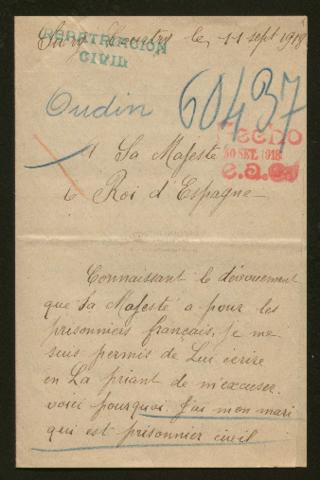 le, 11 sept 1918
REPATRIACION
CIVIL
Oudin
60437
Fecho
30 SET. 1918
A Sa Majesté
Roi d'Espagne
Connaissant le dévouement
que Sa Majesté a pour les
prisonniers français, je me
suis permis de Lui écrire
en La priant de m'excuser.
voici pourquoi J'ai mon mari
qui est prisonnier civil